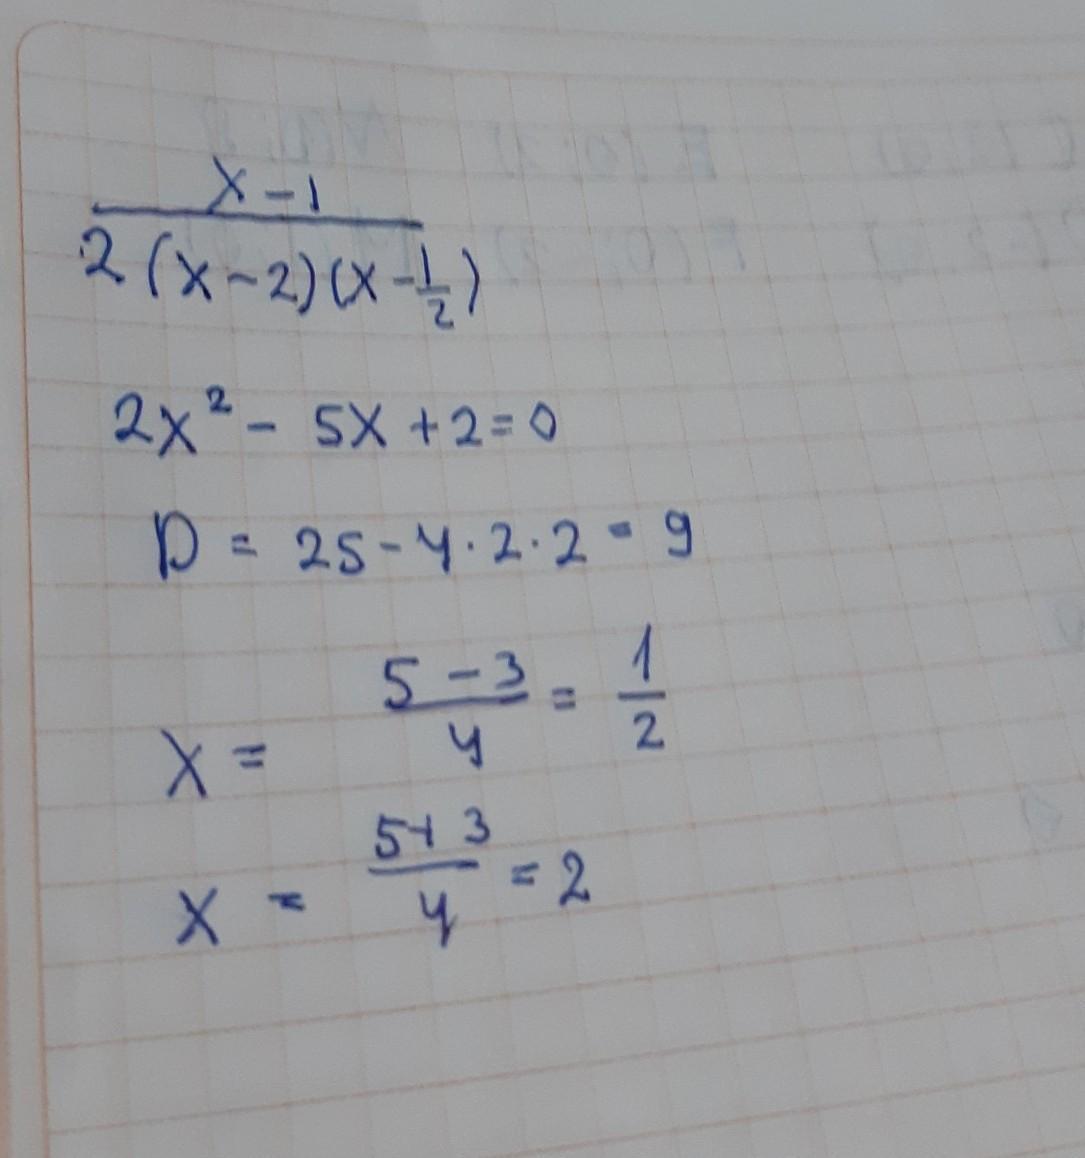 x - 1
2 (x - 2) (x - 1/2)
2x² - 5x + 2 = 0
D = 25 - 4 · 2 · 2 = 9
x = (5 - 3)/4 = 1/2
x = (5 + 3)/4 = 2